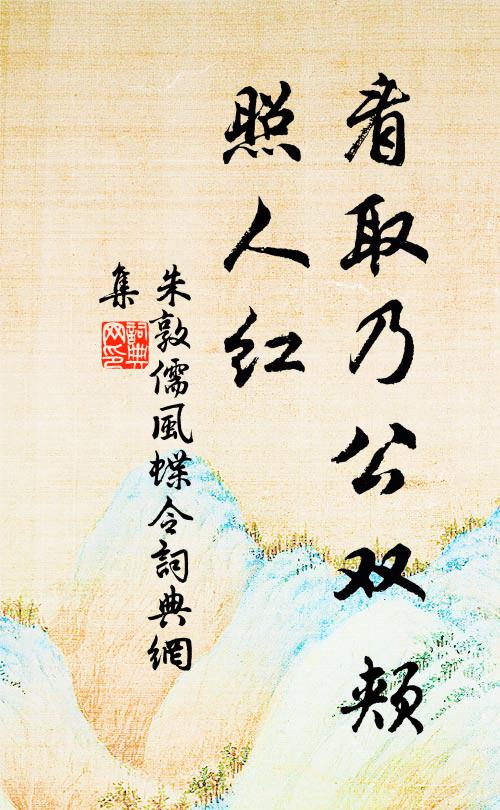 看取乃公双颊
照人红
朱敦儒風蝶令詞典網
集
詞典
网印